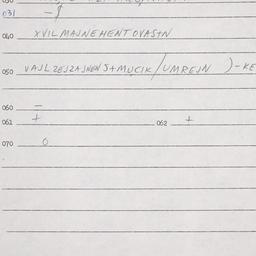 031 -
040 XVILMAJNEHENTOVASTN
050 VAJLZEJZAJNEN S+MUCIK/UMREJN )-KE
060 —
061 + 062 +
070 O